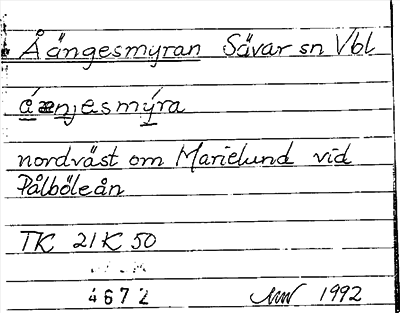 Åängesmyran Sävar sn Vbl
å´æ̀njesmýra
nordväst om Marielund vid
Pålböleån
TK 21K 50
4672 1992